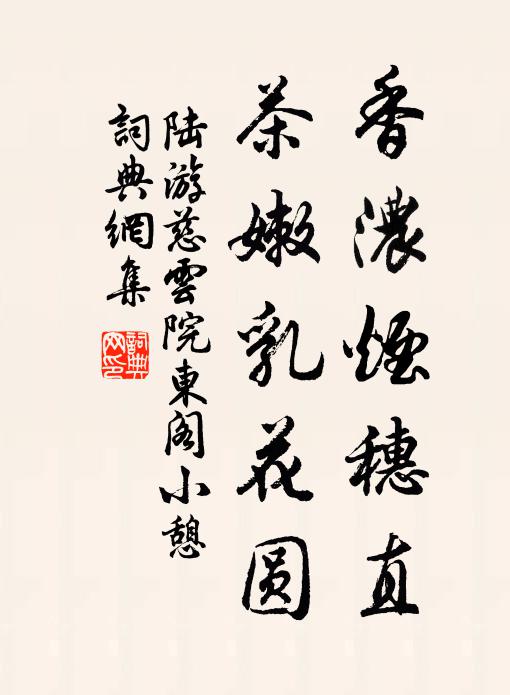 香濃煙穗直
茶嫩乳花圆
陆游慈雲院東阁小憩
詞典網集
詞典網印